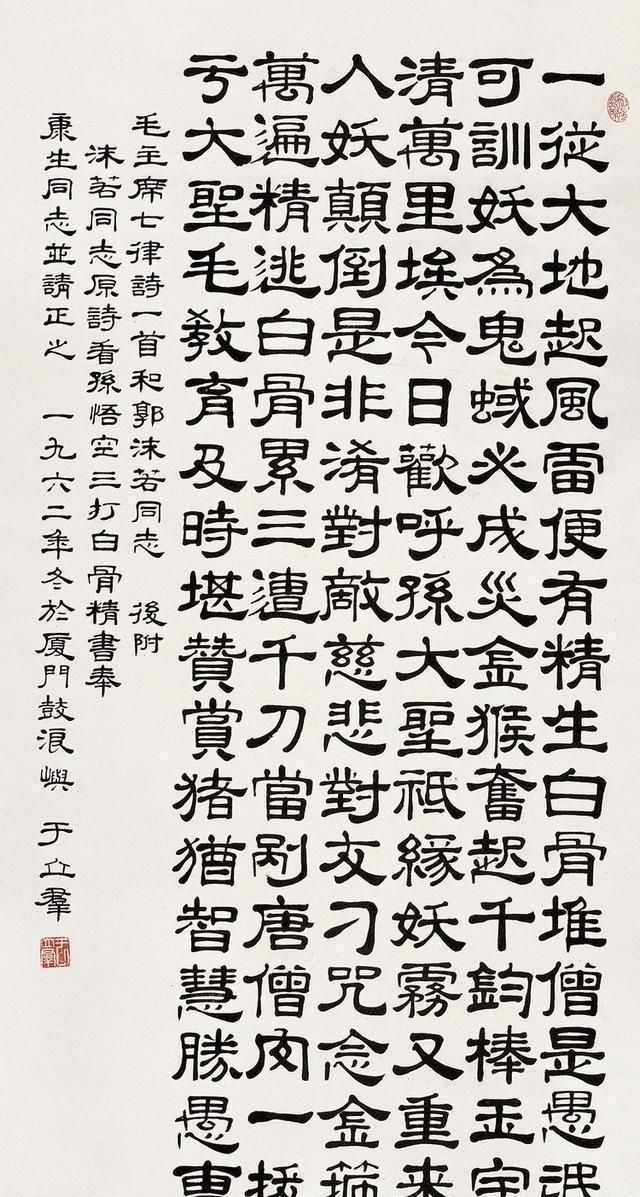 一從大地起風雷便有精生白骨堆僧是愚氓
可訓妖爲鬼蜮必成災金猴奮起千鈞棒玉宇
清萬里埃今日歡呼孫大聖祇緣妖霧又重來
人妖顛倒是非淆對敵慈悲對友刁咒念金箍
萬遍精逃白骨累三遭千刀當剮唐僧肉一拔
亏大聖毛教育及時堪贊賞猪猶智慧勝愚曹
毛主席七律詩一首和郭沫若同志 後附
沫若同志原詩看孫悟空三打白骨精書奉
康生同志並請正之 一九六二年冬於厦門鼓浪嶼 于立羣
于立羣